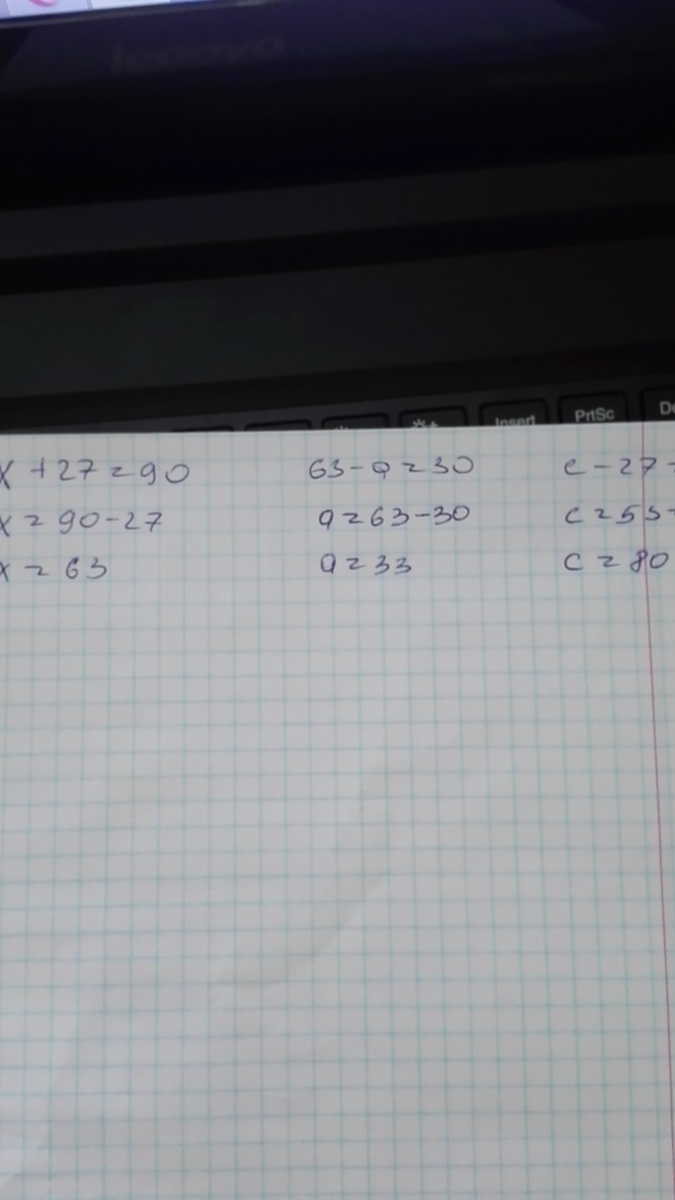 lenovo
Insert PrtSc De
x + 27 = 90
x = 90 - 27
x = 63
63 - a = 30
a = 63 - 30
a = 33
c - 27 =
c = 53 +
c = 80